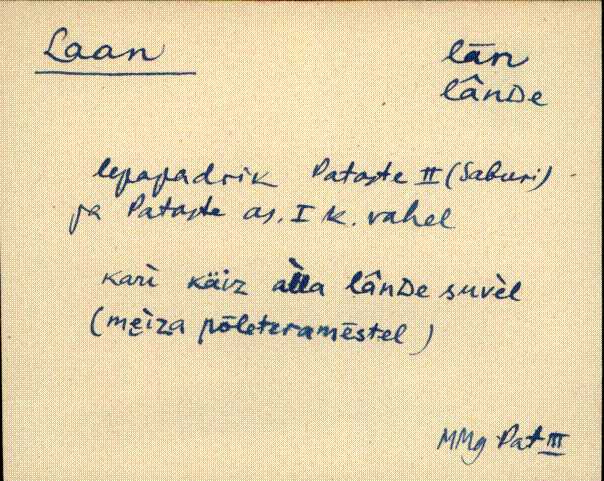 Laan
lān
lânDe
lepapadrik Pataste II (Saburi)
ja Pataste as. I k. vahel
kari käiz àlla lânDe suvèl
(mȩìza põleteramēstel)
MMg Pat III